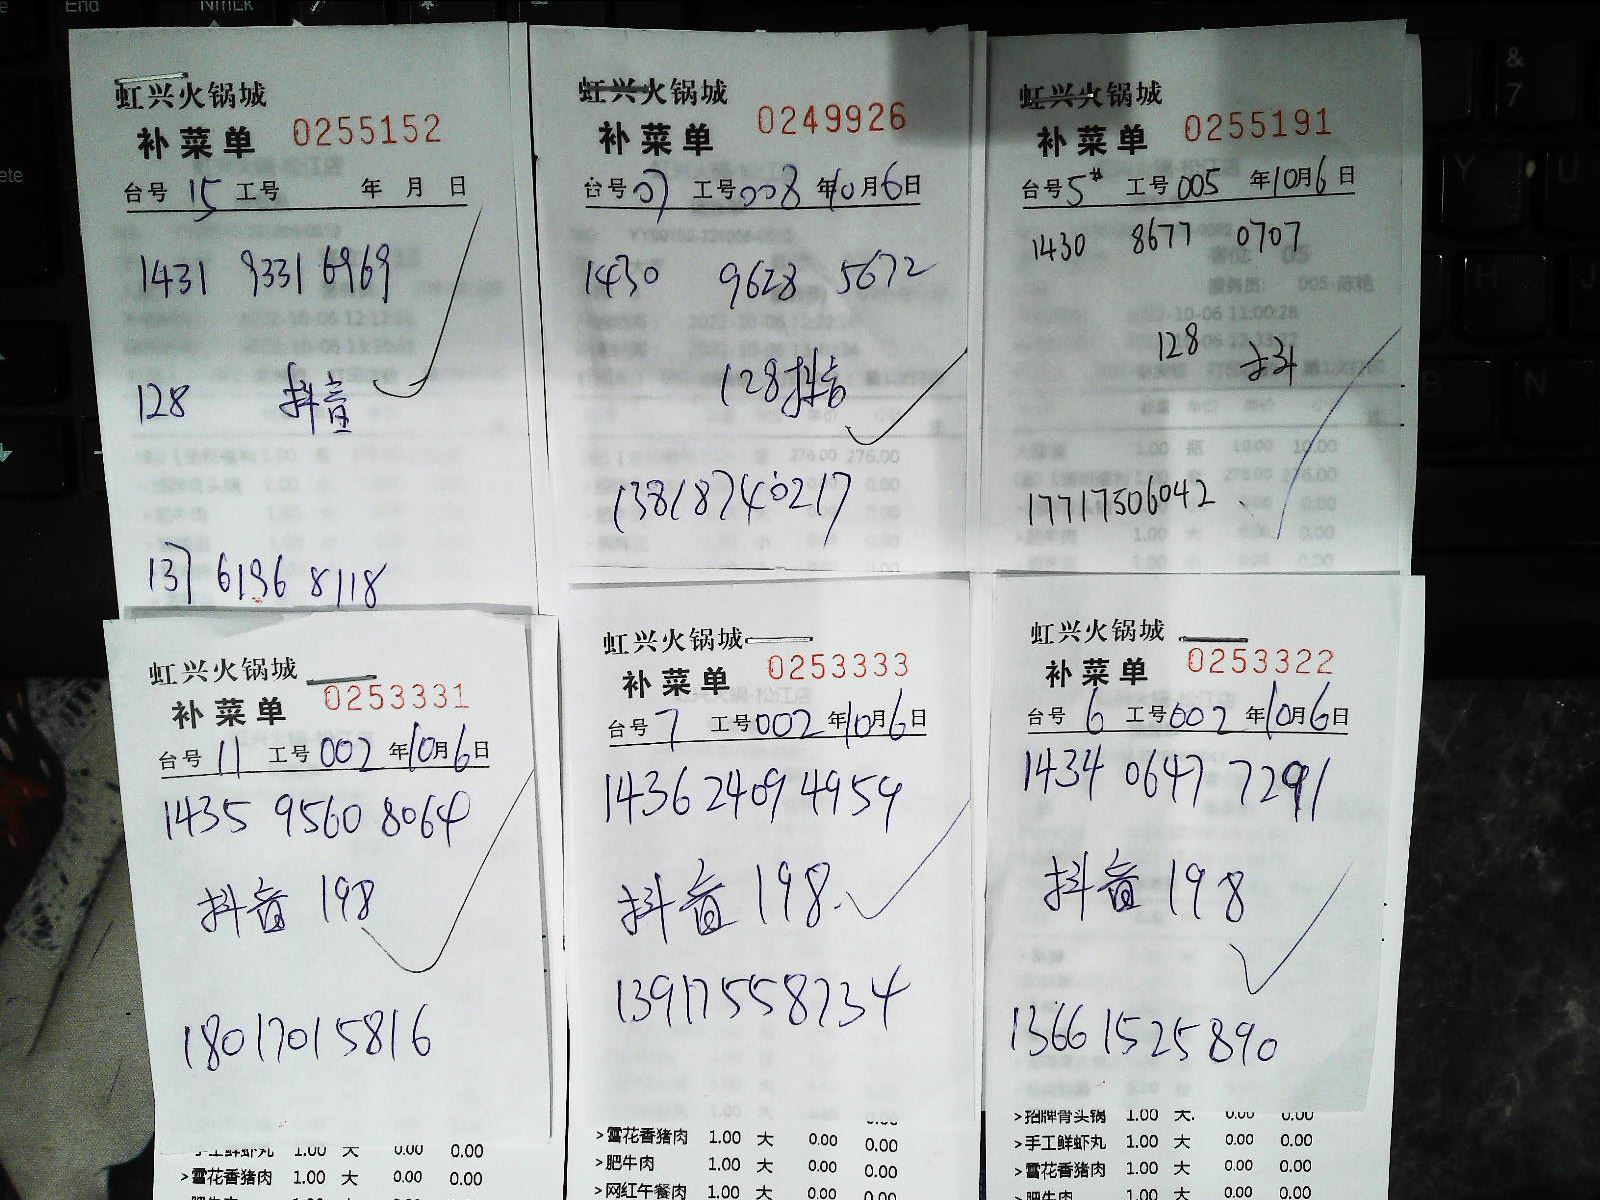 虹兴火锅城
补菜单 0255152
台号 15 工号 年 月 日
1431 9331 6969
128 抖音
137 6196 8118
虹兴火锅城
补菜单 0249926
台号 07 工号 008 年10月6日
1430 9628 5672
128抖音
13818740217
虹兴火锅城
补菜单 0255191
台号 5# 工号 005 年10月6日
1430 8677 0707
128 抖
17717506042
虹兴火锅城
补菜单 0253331
台号 11 工号 002 年10月6日
1435 9560 8064
抖音 198
18017015816
手工鲜虾丸 1.00 大 0.00 0.00
>雪花香猪肉 1.00 大 0.00 0.00
虹兴火锅城
补菜单 0253333
台号 7 工号 002 年10月6日
1436 2409 4959
抖音 198.
13917558734
>雪花香猪肉 1.00 大 0.00 0.00
>肥牛肉 1.00 大 0.00 0.00
>网红午餐肉 1.00 大 0.00 0.00
虹兴火锅城
补菜单 0253322
台号 6 工号 002 年10月6日
1434 0647 7291
抖音 198
13661525890
>招牌骨头锅 1.00 大. 0.00 0.00
>手工鲜虾丸 1.00 大 0.00 0.00
>雪花香猪肉 1.00 大 0.00 0.00
>肥牛肉 1.00 大 0.00 0.00